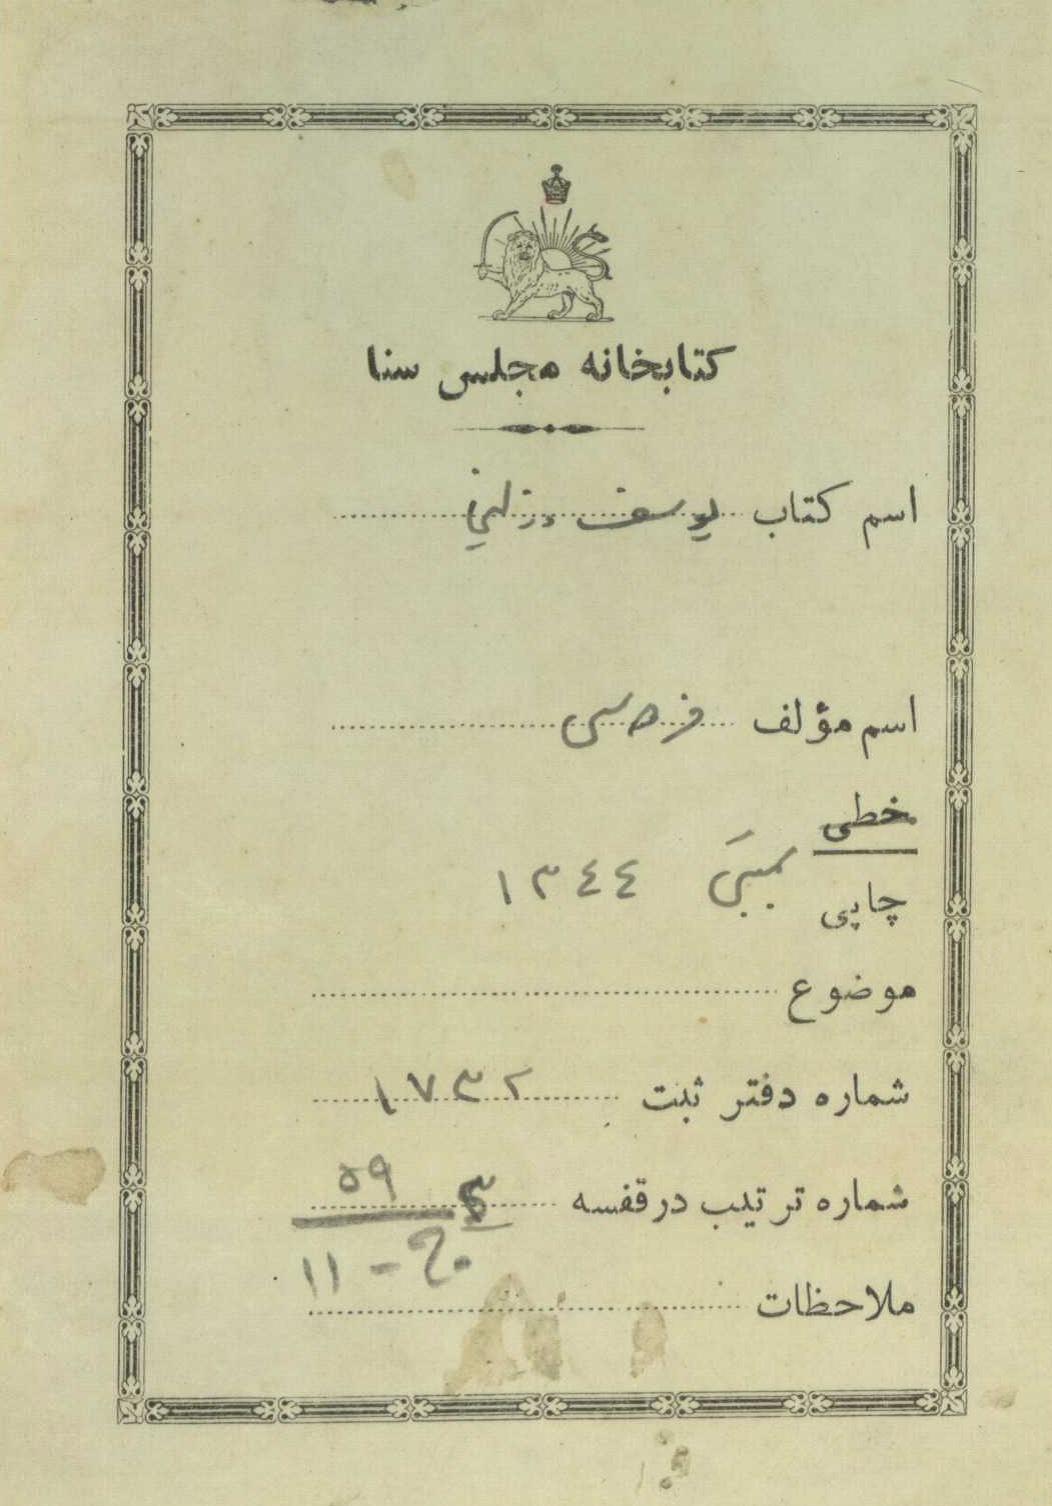 کتابخانه مجلس سنا
اسم کتاب یوسف و زلیخا
اسم مؤلف فردوسی
خطی
چاپی بمبئی ١٣٤٤
موضوع
شماره دفتر ثبت ١٧٣٢
شماره ترتیب در قفسه ٥٩
١١ -
ملاحظات